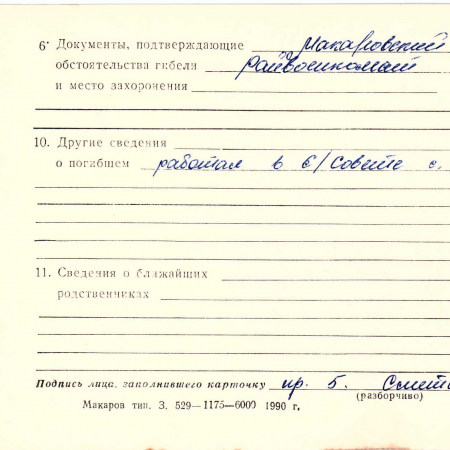 6. Документы, подтверждающие Макаровский
обстоятельства гибели райвоенкомат
и место захоронения
10. Другие сведения
о погибшем работал в с/Совете с.
11. Сведения о ближайших
родственниках
Подпись лица, заполнившего карточку пр. б. Смета
(разборчиво)
Макаров тип. З. 529—1175—6000 1990 г.